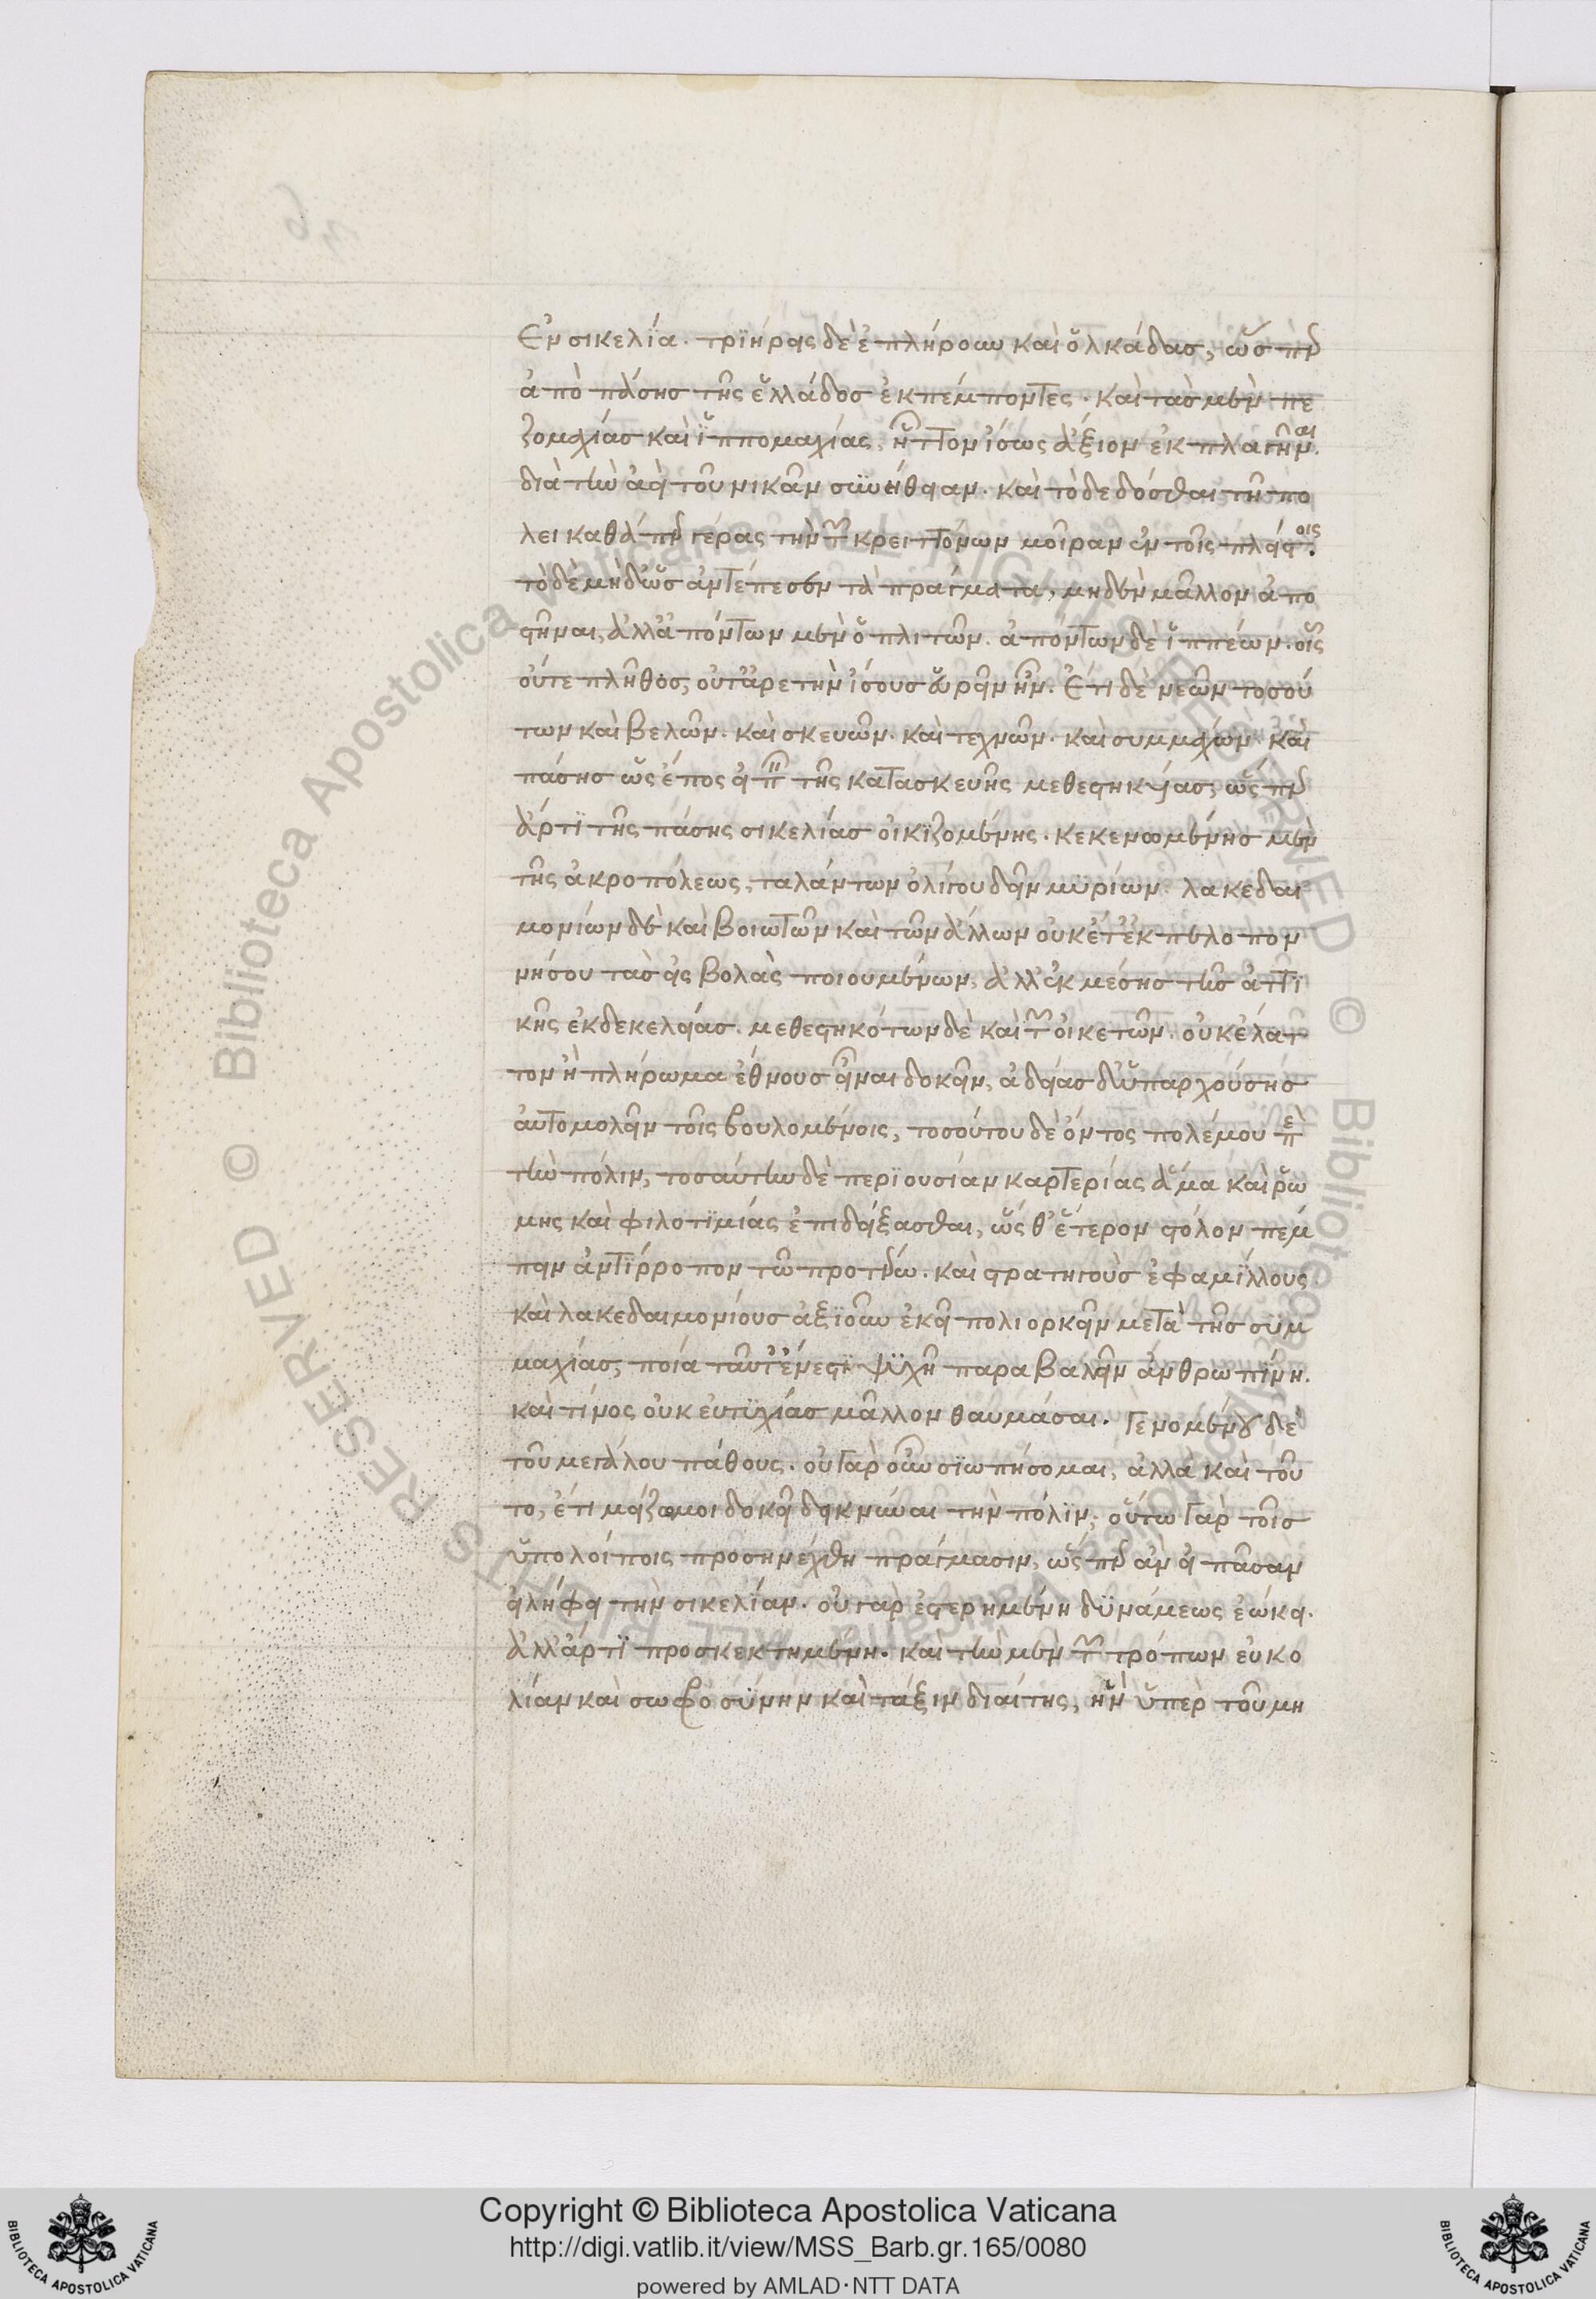 Ἐν σικελία. τριήρεις δὲ ἐπλήρουν καὶ ὁλκάδας, ὥσπερ
ἀπὸ πάσης τῆς ἑλλάδος ἐκπέμποντες. καὶ τὰς μὲν πε
ζομαχίας καὶ ἱππομαχίας, ἧττον ἴσως ἄξιον ἐκπλαγῆναι.
διὰ τὴν ἀεὶ τοῦ νικᾶν συνήθειαν. καὶ τὸ δεδόσθαι τῆ πό
λει καθάπερ γέρας τὴν τῶν κρειττόνων μοῖραν ἐν τοῖς πλείστοις.
τὸ δὲ μηδ' ὡς ἀντέπεσεν τὰ πράγματα, μηδὲν μᾶλλον ἀπο
στῆναι, ἀλλ' ἀπόντων μὲν ὁπλιτῶν. ἀπόντων δὲ ἱππέων. οἷς
οὔτε πλῆθος, οὔτ' ἀρετὴν ἴσους εὑρεῖν ἦν. Ἔτι δὲ νεῶν τοσού
των καὶ βελῶν. καὶ σκευῶν. καὶ τεχνῶν. καὶ συμμάχων. καὶ
πάσης ὡς ἔπος εἰπεῖν τῆς κατασκευῆς μεθεστηκυίας, ὥσπερ
ἄρτι τῆς πάσης σικελίας οἰκιζομένης. κεκενωμένης μὲν
τῆς ἀκροπόλεως, ταλάντων ὀλίγου δεῖν μυρίων. λακεδαι
μονίων δὲ καὶ βοιωτῶν καὶ τῶν ἄλλων οὐκέτ' ἐκ πελοπον
νήσου τὰς εἰσβολὰς ποιουμένων, ἀλλ' ἐκ μέσης τῆς ἀττι
κῆς ἐκ δεκελείας. μεθεστηκότων δὲ καὶ τῶν οἰκετῶν. οὐκ ἔλατ
τον ἢ πλήρωμα ἔθνους εἶναι δοκεῖν, ἀδείας δ' ὑπαρχούσης
αὐτομολεῖν τοῖς βουλομένοις, τοσούτου δὲ ὄντος πολέμου ἐπὶ
τὴν πόλιν, τοσαύτην δὲ περιουσίαν καρτερίας ἅμα καὶ ῥώ
μης καὶ φιλοτιμίας ἐπιδείξασθαι, ὥσθ' ἕτερον στόλον πέμ
πειν ἀντίρροπον τῶ προτέρω. καὶ στρατηγοὺς ἐφαμίλλους
καὶ λακεδαιμονίους ἀξιοῦν ἐκεῖ πολιορκεῖν μετὰ τῆς συμ
μαχίας, ποία ταῦτ' ἔνεστι ψυχῆ παραβαλεῖν ἀνθρωπίνη.
καὶ τίνος οὐκ εὐτυχίας μᾶλλον θαυμάσαι. Γενομένου δὲ
τοῦ μεγάλου πάθους. οὐ γὰρ οὖν σιωπήσομαι, ἀλλὰ καὶ τοῦ
το, ἔτι μείζω μοι δοκεῖ δεικνύναι τὴν πόλιν, οὕτω γὰρ τοῖς
ὑπολοίποις προσηνέχθη πράγμασιν, ὥσπερ ἂν εἰ πᾶσαν
εἰλήφει τὴν σικελίαν. οὐ γὰρ ἐστερημένη δυνάμεως ἐώκει.
ἀλλ' ἄρτι προσκεκτημένη. καὶ τὴν μὲν τῶν τρόπων εὐκο
λίαν καὶ σωφροσύνην καὶ τάξιν διαίτης, ἣν ὑπὲρ τοῦ μη
Copyright © Biblioteca Apostolica Vaticana
http://digi.vatlib.it/view/MSS_Barb.gr.165/0080
powered by AMLAD·NTT DATA